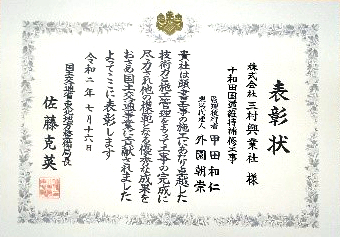 表彰状
株式会社 三村興業社 様
十和田国道維持補修工事
監理技術者 甲田和仁
現場代理人 外園朝崇
貴社は頭書工事の施工にあたり卓越した
技術力と施工管理をもって工事の完成に
尽力され他の模範となる優秀な成果を
おさめ国土交通事業に貢献されました
よってここに表彰します
令和二年七月十六日
国土交通省東北地方整備局長
佐藤克英